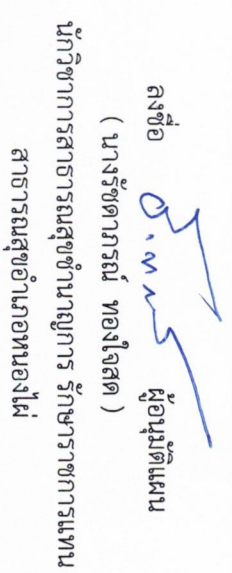 ลงชื่อ ผู้อนุมัติแผน
( นางรัชดาภรณ์ ทองใจสด )
นักวิชาการสาธารณสุขชำนาญการ รักษาราชการแทน
สาธารณสุขอำเภอหนองไผ่